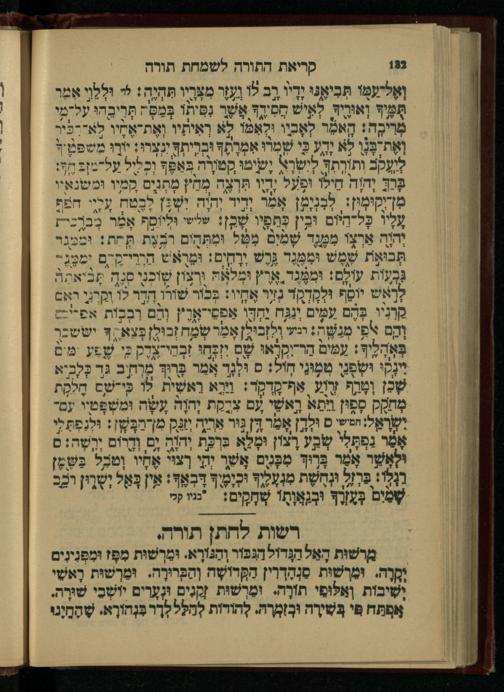 132 קריאת התורה לשמחת תורה
וְאֶל־עַמּוֹ תְּבִיאֶנּוּ יָדָיו רָב לוֹ וְעֵזֶר מִצָּרָיו תִּהְיֶה׃ לוי וּלְלֵוִי אָמַר
תֻּמֶּיךָ וְאוּרֶיךָ לְאִישׁ חֲסִידֶךָ אֲשֶׁר נִסִּיתוֹ בְּמַסָּה תְּרִיבֵהוּ עַל־מֵי
מְרִיבָה׃ הָאֹמֵר לְאָבִיו וּלְאִמּוֹ לֹא רְאִיתִיו וְאֶת־אֶחָיו לֹא־הִכִּיר
וְאֶת־בָּנָו לֹא יָדָע כִּי שָׁמְרוּ אִמְרָתֶךָ וּבְרִיתְךָ יִנְצֹרוּ׃ יוֹרוּ מִשְׁפָּטֶיךָ
לְיַעֲקֹב וְתוֹרָתְךָ לְיִשְׂרָאֵל יָשִׂימוּ קְטוֹרָה בְּאַפֶּךָ וְכָלִיל עַל־מִזְבְּחֶךָ׃
בָּרֵךְ יְהוָה חֵילוֹ וּפֹעַל יָדָיו תִּרְצֶה מְחַץ מָתְנַיִם קָמָיו וּמְשַׂנְאָיו
מִן־יְקוּמוּן׃ לְבִנְיָמִן אָמַר יְדִיד יְהוָה יִשְׁכֹּן לָבֶטַח עָלָיו חֹפֵף
עָלָיו כָּל־הַיּוֹם וּבֵין כְּתֵפָיו שָׁכֵן׃ שלישי וּלְיוֹסֵף אָמַר מְבֹרֶכֶת
יְהוָה אַרְצוֹ מִמֶּגֶד שָׁמַיִם מִטָּל וּמִתְּהוֹם רֹבֶצֶת תָּחַת׃ וּמִמֶּגֶד
תְּבוּאֹת שָׁמֶשׁ וּמִמֶּגֶד גֶּרֶשׁ יְרָחִים׃ וּמֵרֹאשׁ הַרְרֵי־קֶדֶם וּמִמֶּגֶד
גִּבְעוֹת עוֹלָם׃ וּמִמֶּגֶד אֶרֶץ וּמְלֹאָהּ וּרְצוֹן שֹׁכְנִי סְנֶה תָּבוֹאתָה
לְרֹאשׁ יוֹסֵף וּלְקָדְקֹד נְזִיר אֶחָיו׃ בְּכוֹר שׁוֹרוֹ הָדָר לוֹ וְקַרְנֵי רְאֵם
קַרְנָיו בָּהֶם עַמִּים יְנַגַּח יַחְדָּו אַפְסֵי־אָרֶץ וְהֵם רִבְבוֹת אֶפְרַיִם
וְהֵם אַלְפֵי מְנַשֶּׁה׃ רביעי וְלִזְבוּלֻן אָמַר שְׂמַח זְבוּלֻן בְּצֵאתֶךָ וְיִשָּׂשכָר
בְּאֹהָלֶיךָ׃ עַמִּים הַר־יִקְרָאוּ שָׁם יִזְבְּחוּ זִבְחֵי־צֶדֶק כִּי שֶׁפַע יַמִּים
יִינָקוּ וּשְׂפֻנֵי טְמוּנֵי חוֹל׃ ס וּלְגָד אָמַר בָּרוּךְ מַרְחִיב גָּד כְּלָבִיא
שָׁכֵן וְטָרַף זְרוֹעַ אַף־קָדְקֹד׃ וַיַּרְא רֵאשִׁית לוֹ כִּי־שָׁם חֶלְקַת
מְחֹקֵק סָפוּן וַיֵּתֵא רָאשֵׁי עָם צִדְקַת יְהוָה עָשָׂה וּמִשְׁפָּטָיו עִם־
יִשְׂרָאֵל׃ חמישי ס וּלְדָן אָמַר דָּן גּוּר אַרְיֵה יְזַנֵּק מִן־הַבָּשָׁן׃ וּלְנַפְתָּלִי
אָמַר נַפְתָּלִי שְׂבַע רָצוֹן וּמָלֵא בִּרְכַּת יְהוָה יָם וְדָרוֹם יְרָשָׁה׃ ס
וּלְאָשֵׁר אָמַר בָּרוּךְ מִבָּנִים אָשֵׁר יְהִי רְצוּי אֶחָיו וְטֹבֵל בַּשֶּׁמֶן
רַגְלוֹ׃ בַּרְזֶל וּנְחֹשֶׁת מִנְעָלֶיךָ וּכְיָמֶיךָ דָּבְאֶךָ׃ אֵין כָּאֵל יְשֻׁרוּן רֹכֵב
שָׁמַיִם בְּעֶזְרֶךָ וּבְגַאֲוָתוֹ שְׁחָקִים׃
רשות לחתן תורה.
מֵרְשׁוּת הָאֵל הַגָּדוֹל הַגִּבּוֹר וְהַנּוֹרָא. וּמֵרְשׁוּת מִפָּז וּמִפְּנִינִים
יְקָרָה. וּמֵרְשׁוּת סַנְהֶדְרִין הַקְּדוֹשָׁה וְהַבְּרוּרָה. וּמֵרְשׁוּת רָאשֵׁי
יְשִׁיבוֹת וְאַלּוּפֵי תוֹרָה. וּמֵרְשׁוּת זְקֵנִים וּנְעָרִים יוֹשְׁבֵי שׁוּרָה.
אֶפְתַּח פִּי בְּשִׁירָה וּבְזִמְרָה. לְהוֹדוֹת לְהַלֵּל לְדָר בִּנְהוֹרָא. שֶׁהֶחֱיָנוּ